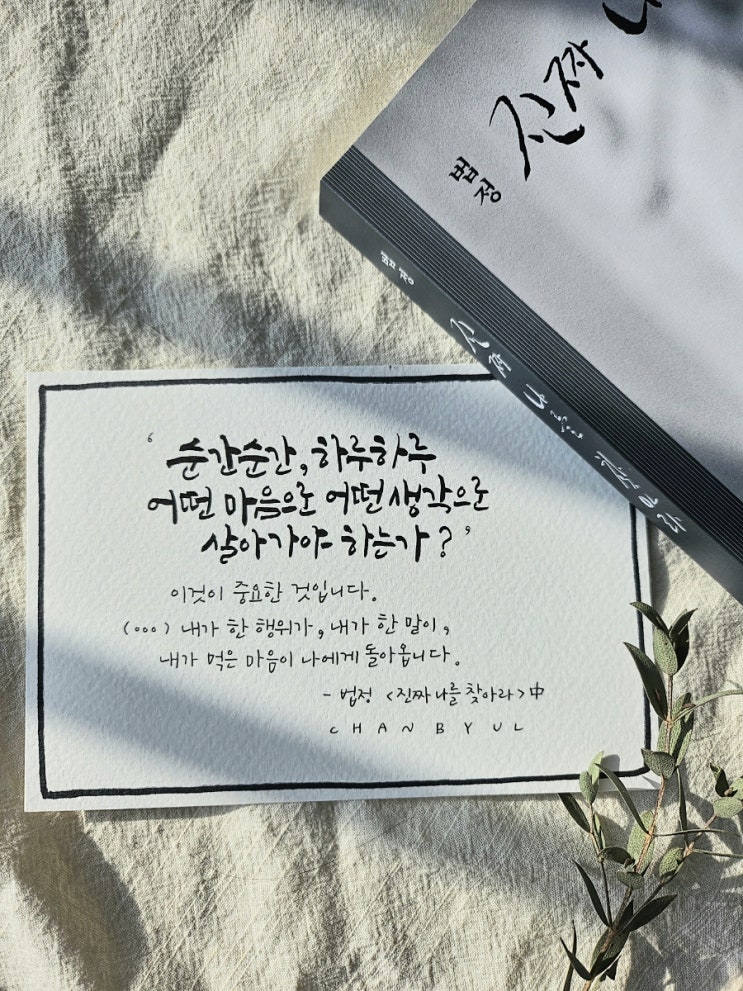 진짜 나
법정
법정 진짜 나를 찾아라
‘순간순간, 하루하루
어떤 마음으로 어떤 생각으로
살아가야 하는가?’
이것이 중요한 것입니다.
(...) 내가 한 행위가, 내가 한 말이,
내가 먹은 마음이 나에게 돌아옵니다.
- 법정 <진짜 나를 찾아라> 中
CHANBYUL